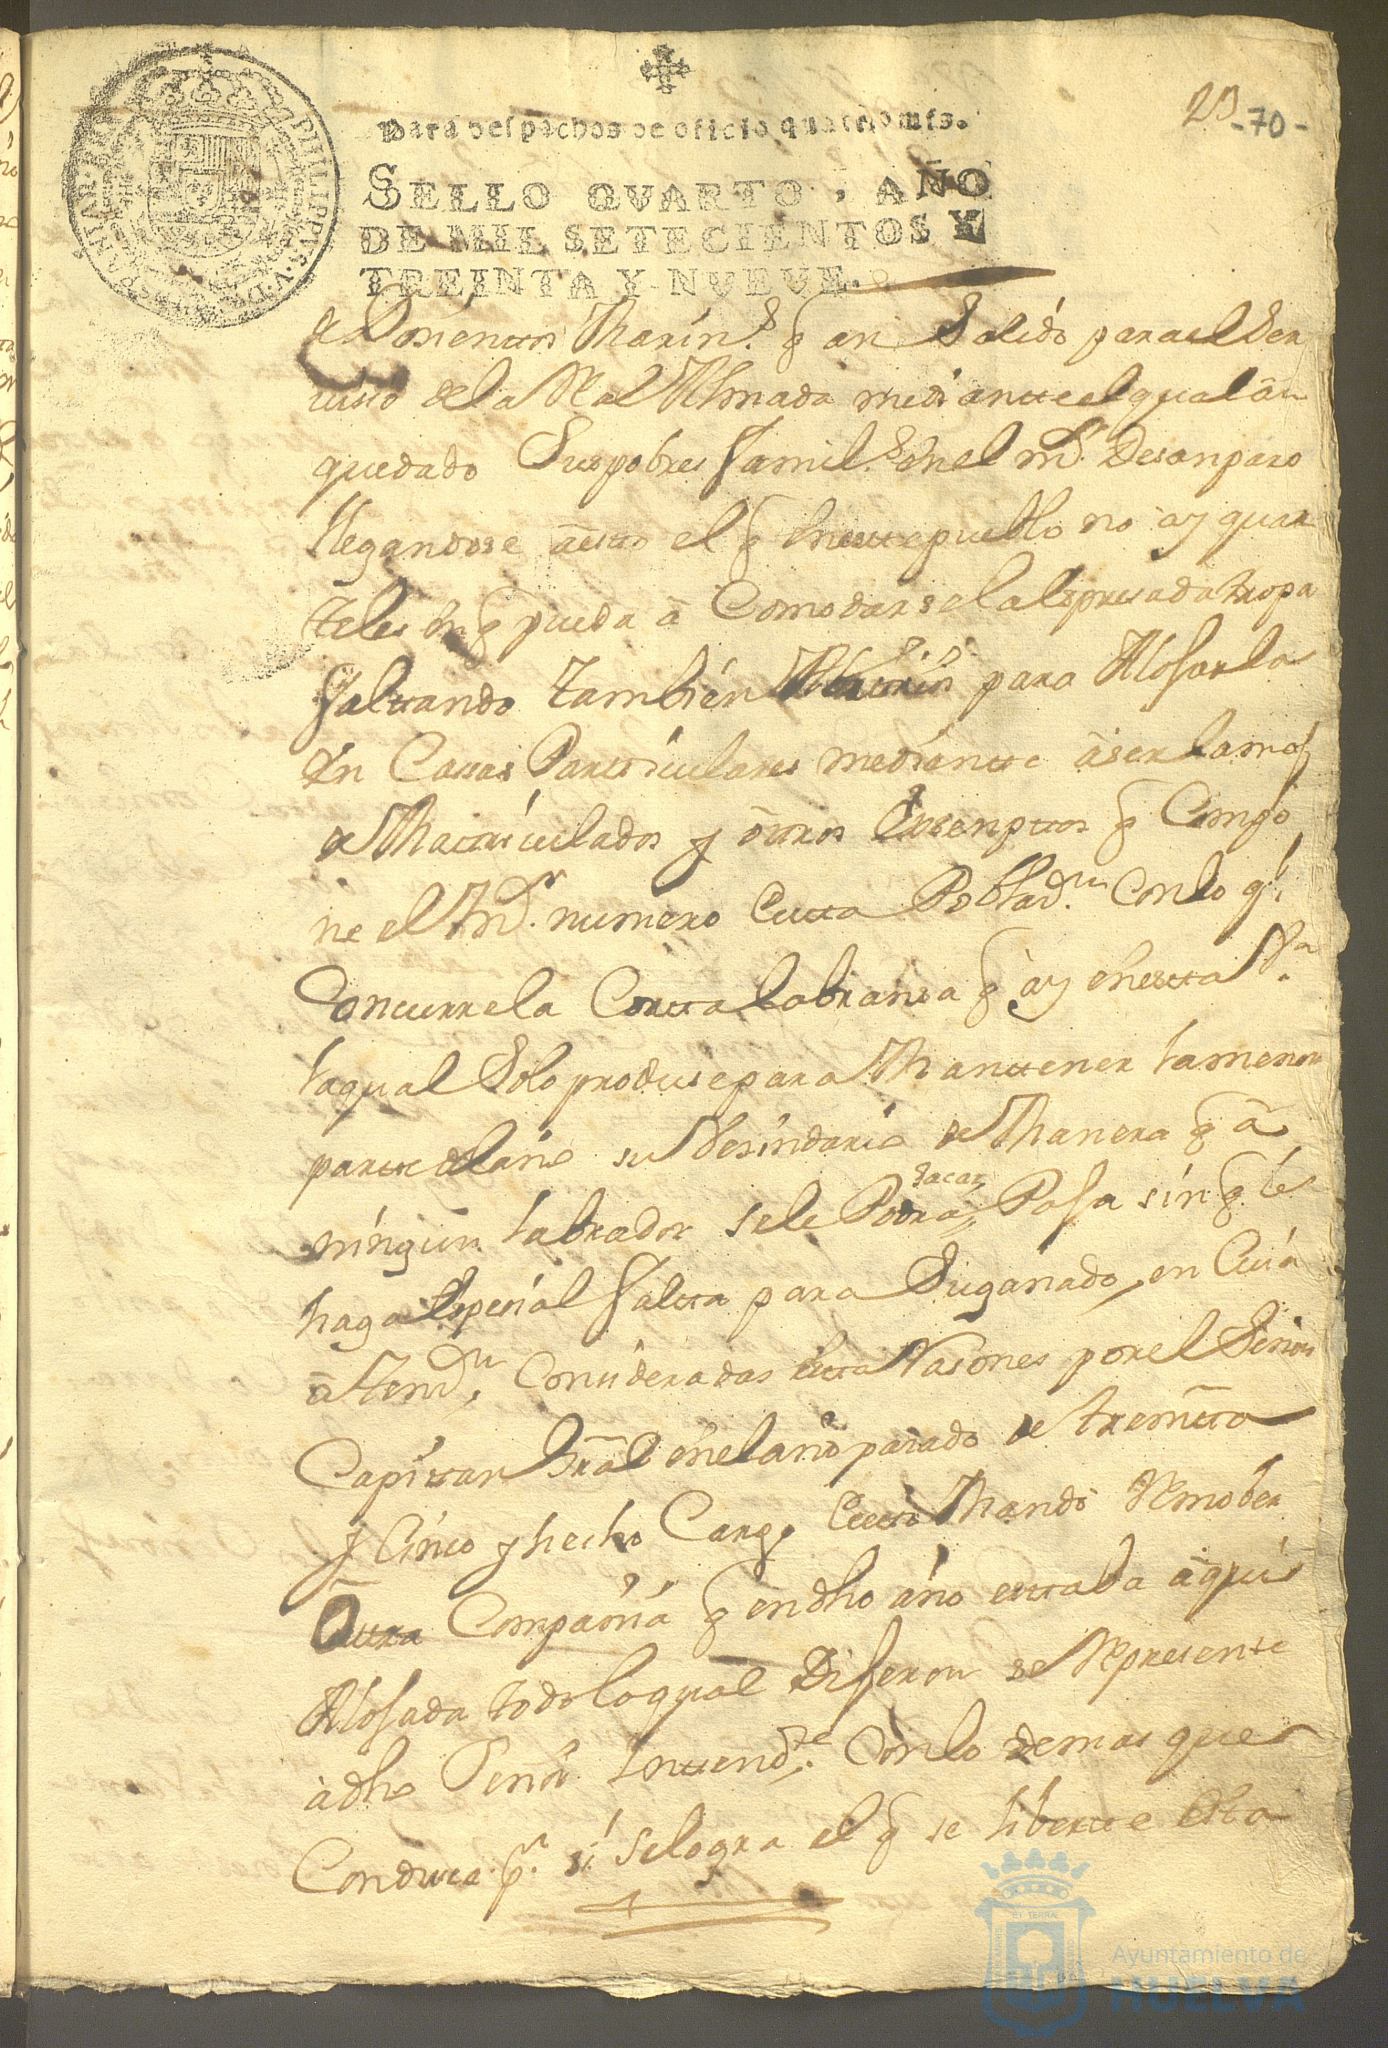 23 -70-
Para despachos de oficio quatro mrs.
SELLO QVARTO, AÑO
DE MIL SETECIENTOS Y
TREINTA Y NUEVE.
PHILIPPVS·V·D·G· HISPANIAR·REX
de Dosientos Marin.s q an Salido para el Ser
uisio de la Rl Armada mediante el qual án
quedado Sus pobres famil.s en el mr. Desanparo
llegandose áesto el q en este pueblo no ay quar
teles en q pueda á Comodarse la espresada tropa
faltando tambien para Alojarla
En Casas Particulares mediante áser lamas
de Matriculados y ótros Exsemptos q Compo
ne el mr. numero esta Poblaz.n Con lo ql
Concurre la Corta labransa q ay en esta Va.
la qual Solo produse para Mantener la menor
parte del año su Besindario de Manera q á
ningun labrador se le Podra sacar Paja sin q le
haga espesial falta para Su ganado, en Cuia
átenz.n Consideradas esta Rasones por el Señor
Capitan Gral en el año pasado de treinta
y Cinco y hecho Cargo Mando Remober
Otra Compañia q en dho áño estaba áqui
Alojada todo lo qual Dijeron se Represente
ádho Señor Intend.te Con lo demas que
Condusca p.a si se logra el q se liberte esta
Ayuntamiento de
HUELVA